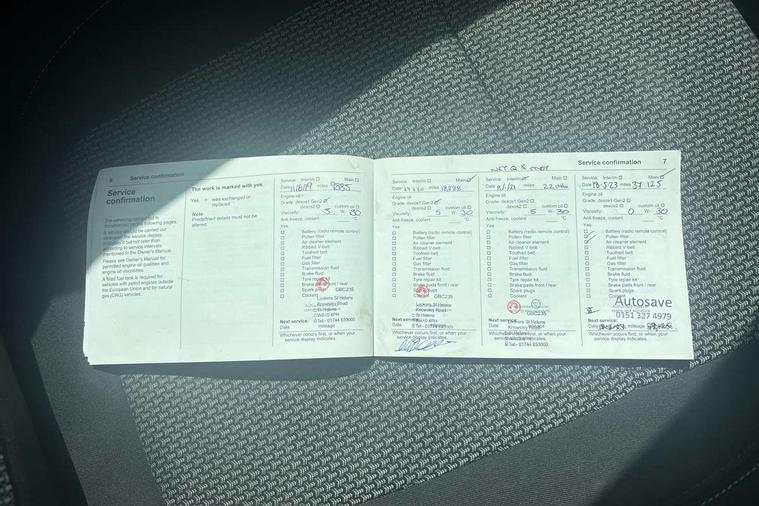 6 Service confirmation
Service
confirmation
The servicing conducted is
documented on the following pages.
A service should be carried out
whenever the service display
indicates it but not later than
according to service intervals
mentioned in the Owner's Manual.
Please see Owner's Manual for
permitted engine oil qualities and
engine oil viscosities.
A filled fuel tank is required for
vehicles with petrol engines outside
the European Union and for natural
gas (CNG) vehicles.
The work is marked with yes
Yes = was exchanged or
replaced
Note
Predefined details must not be
altered.
Service: Interim Main
Date 11/6/19 miles 9885
Engine oil
Grade: dexos1 Gen2
dexos2 custom oil
Viscosity: 5 W- 30
Anti-freeze, coolant °C
Yes
Battery (radio remote control)
Pollen filter
Air cleaner element
Ribbed V-belt
Toothed belt
Fuel filter
Gas filter
Transmission fluid
Brake fluid
Tyre repair kit
Brake pads front / rear
Spark plugs GBC235
Coolant
Lookers St Helens
Knowsley Road
St Helens
WA10 4PH
Tel - 01744 633000
Next service:
Date mileage
Whichever occurs first, or when your
service display indicates.
Service: Interim Main
Date miles 18888
Engine oil
Grade: dexos1 Gen2
dexos2 custom oil
Viscosity: 5 W- 30
Anti-freeze, coolant °C
Yes
Battery (radio remote control)
Pollen filter
Air cleaner element
Ribbed V-belt
Toothed belt
Fuel filter
Gas filter
Transmission fluid
Brake fluid
Tyre repair kit
Brake pads front / rear
Spark plugs
Coolant GBC235
Lookers St Helens
Knowsley Road
St Helens
WA10 4PH
Tel - 01744 633000
Next service:
Date mileage
Whichever occurs first, or when your
service display indicates.
Service: Interim Main
Date miles
Engine oil
Grade: dexos1 Gen2
dexos2 custom oil
Viscosity: 5 W- 30
Anti-freeze, coolant °C
Yes
Battery (radio remote control)
Pollen filter
Air cleaner element
Ribbed V-belt
Toothed belt
Fuel filter
Gas filter
Transmission fluid
Brake fluid
Tyre repair kit
Brake pads front / rear
Spark plugs
Coolant
GBC235
Lookers St Helens
Knowsley Road
Next service:
Date mileage
Tel - 01744 633000
Whichever occurs first, or when your
service display indicates.
Service confirmation 7
Service: Interim Main
Date miles 37125
Engine oil
Grade: dexos1 Gen2
dexos2 custom oil
Viscosity: 0 W- 30
Anti-freeze, coolant °C
Yes
Battery (radio remote control)
Pollen filter
Air cleaner element
Ribbed V-belt
Toothed belt
Fuel filter
Gas filter
Transmission fluid
Brake fluid
Tyre repair kit
Brake pads front / rear
Spark plugs
Coolant
Autosave
0151 327 4979
Next service:
Date mileage
Whichever occurs first, or when your
service display indicates.